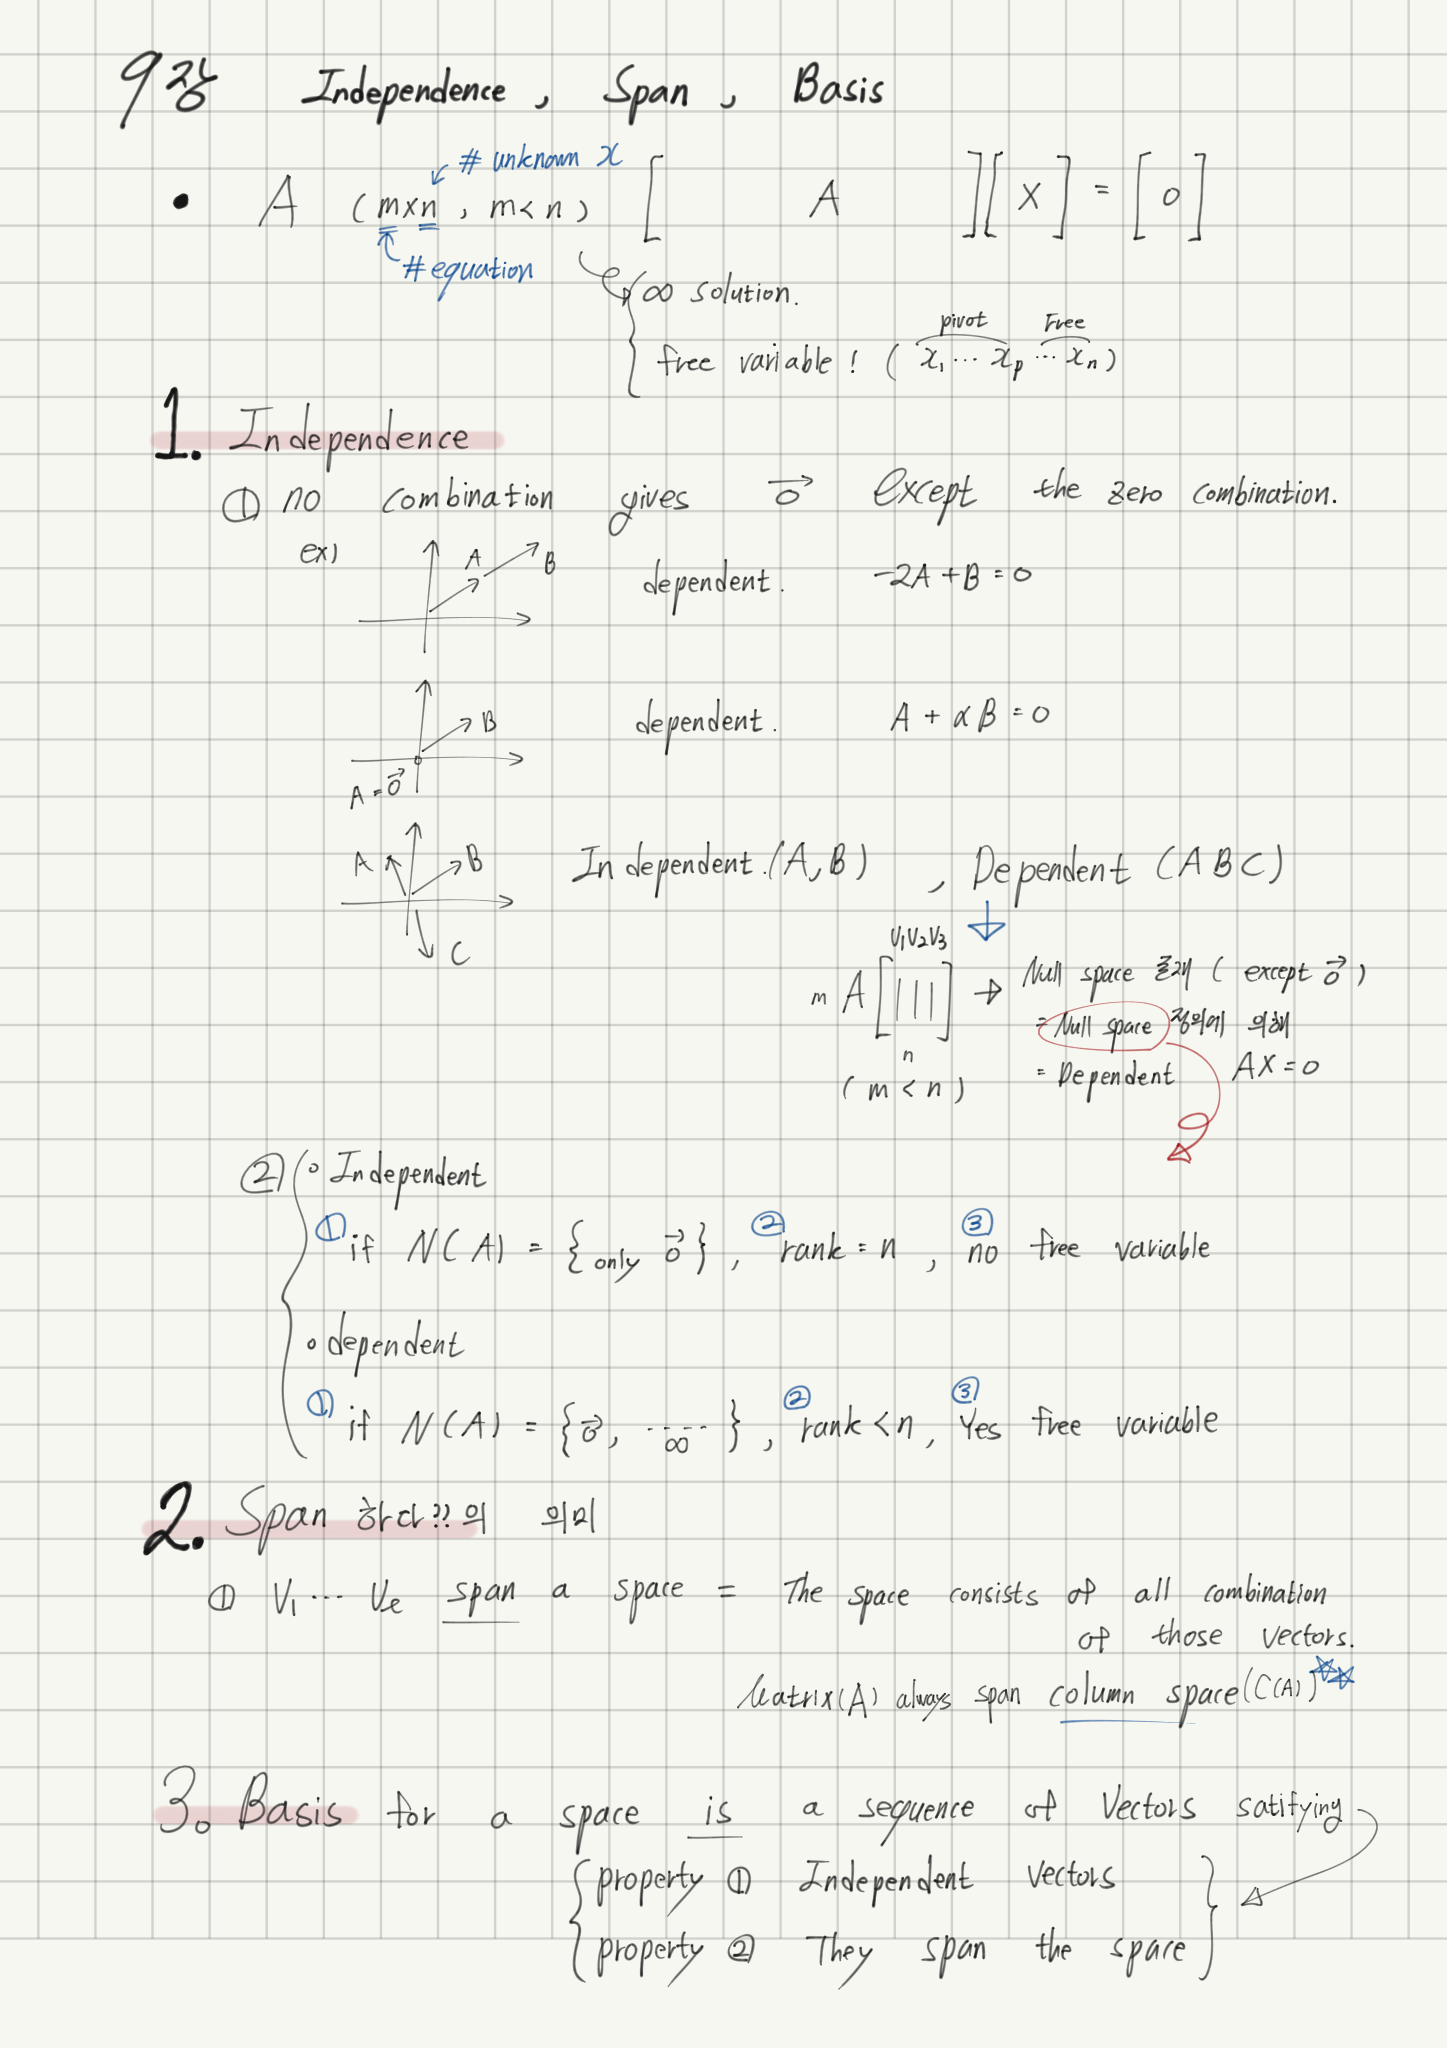 9강 Independence, Span, Basis
# unknown x
• A (m×n, m<n) [ A ][ X ] = [ 0 ]
# equation
∞ solution.
pivot Free
free variable! (x₁ ··· xₚ ··· xₙ)
1. Independence
① no combination gives 0⃗ except the zero combination.
ex)
A B dependent. -2A+B=0
B dependent. A+αB=0
A=0⃗
A B Independent.(A,B), Dependent (ABC)
C
V₁V₂V₃
m A [|||] → Null space 존재 (except 0⃗)
= Null space 정의에 의해
n
(m<n) = Dependent AX=0
② ∘ Independent
① if N(A) = {only 0⃗}, ② rank=n, ③ no free variable
∘ dependent
① if N(A) = {0⃗, ······ ∞}, ② rank<n, ③ Yes free variable
2. Span 하다??의 의미
① V₁ ··· Vₑ span a space = The space consists of all combination
of those vectors.
Matrix(A) always span column space(C(A)) ☆☆
3. Basis for a space is a sequence of Vectors satifying
property ① Independent Vectors
property ② They span the space